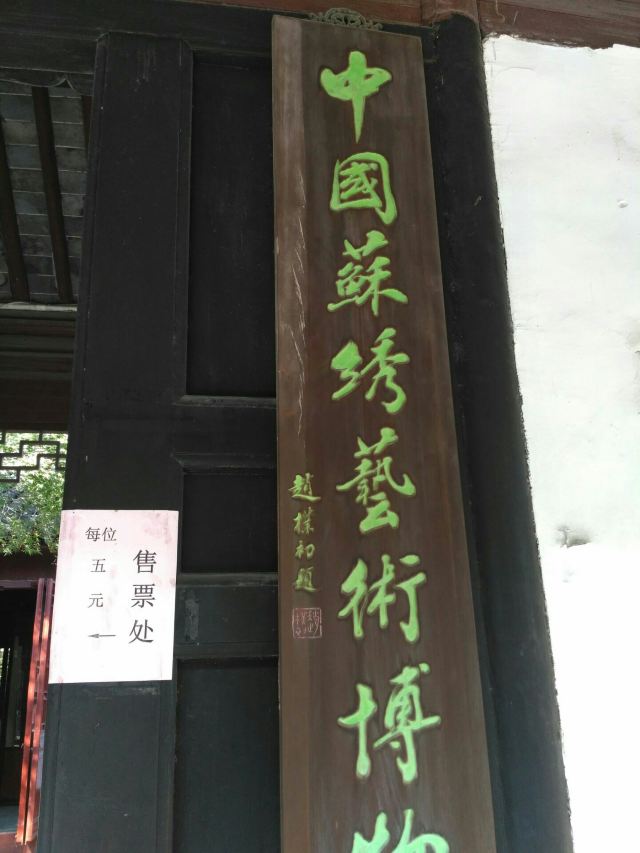 中國蘇綉藝術博物
趙樸初題
售票处
每位
五元
←